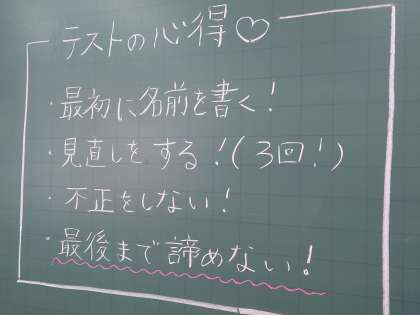 テストの心得♡
・最初に名前を書く！
・見直しをする！(３回！)
・不正をしない！
・最後まで諦めない！